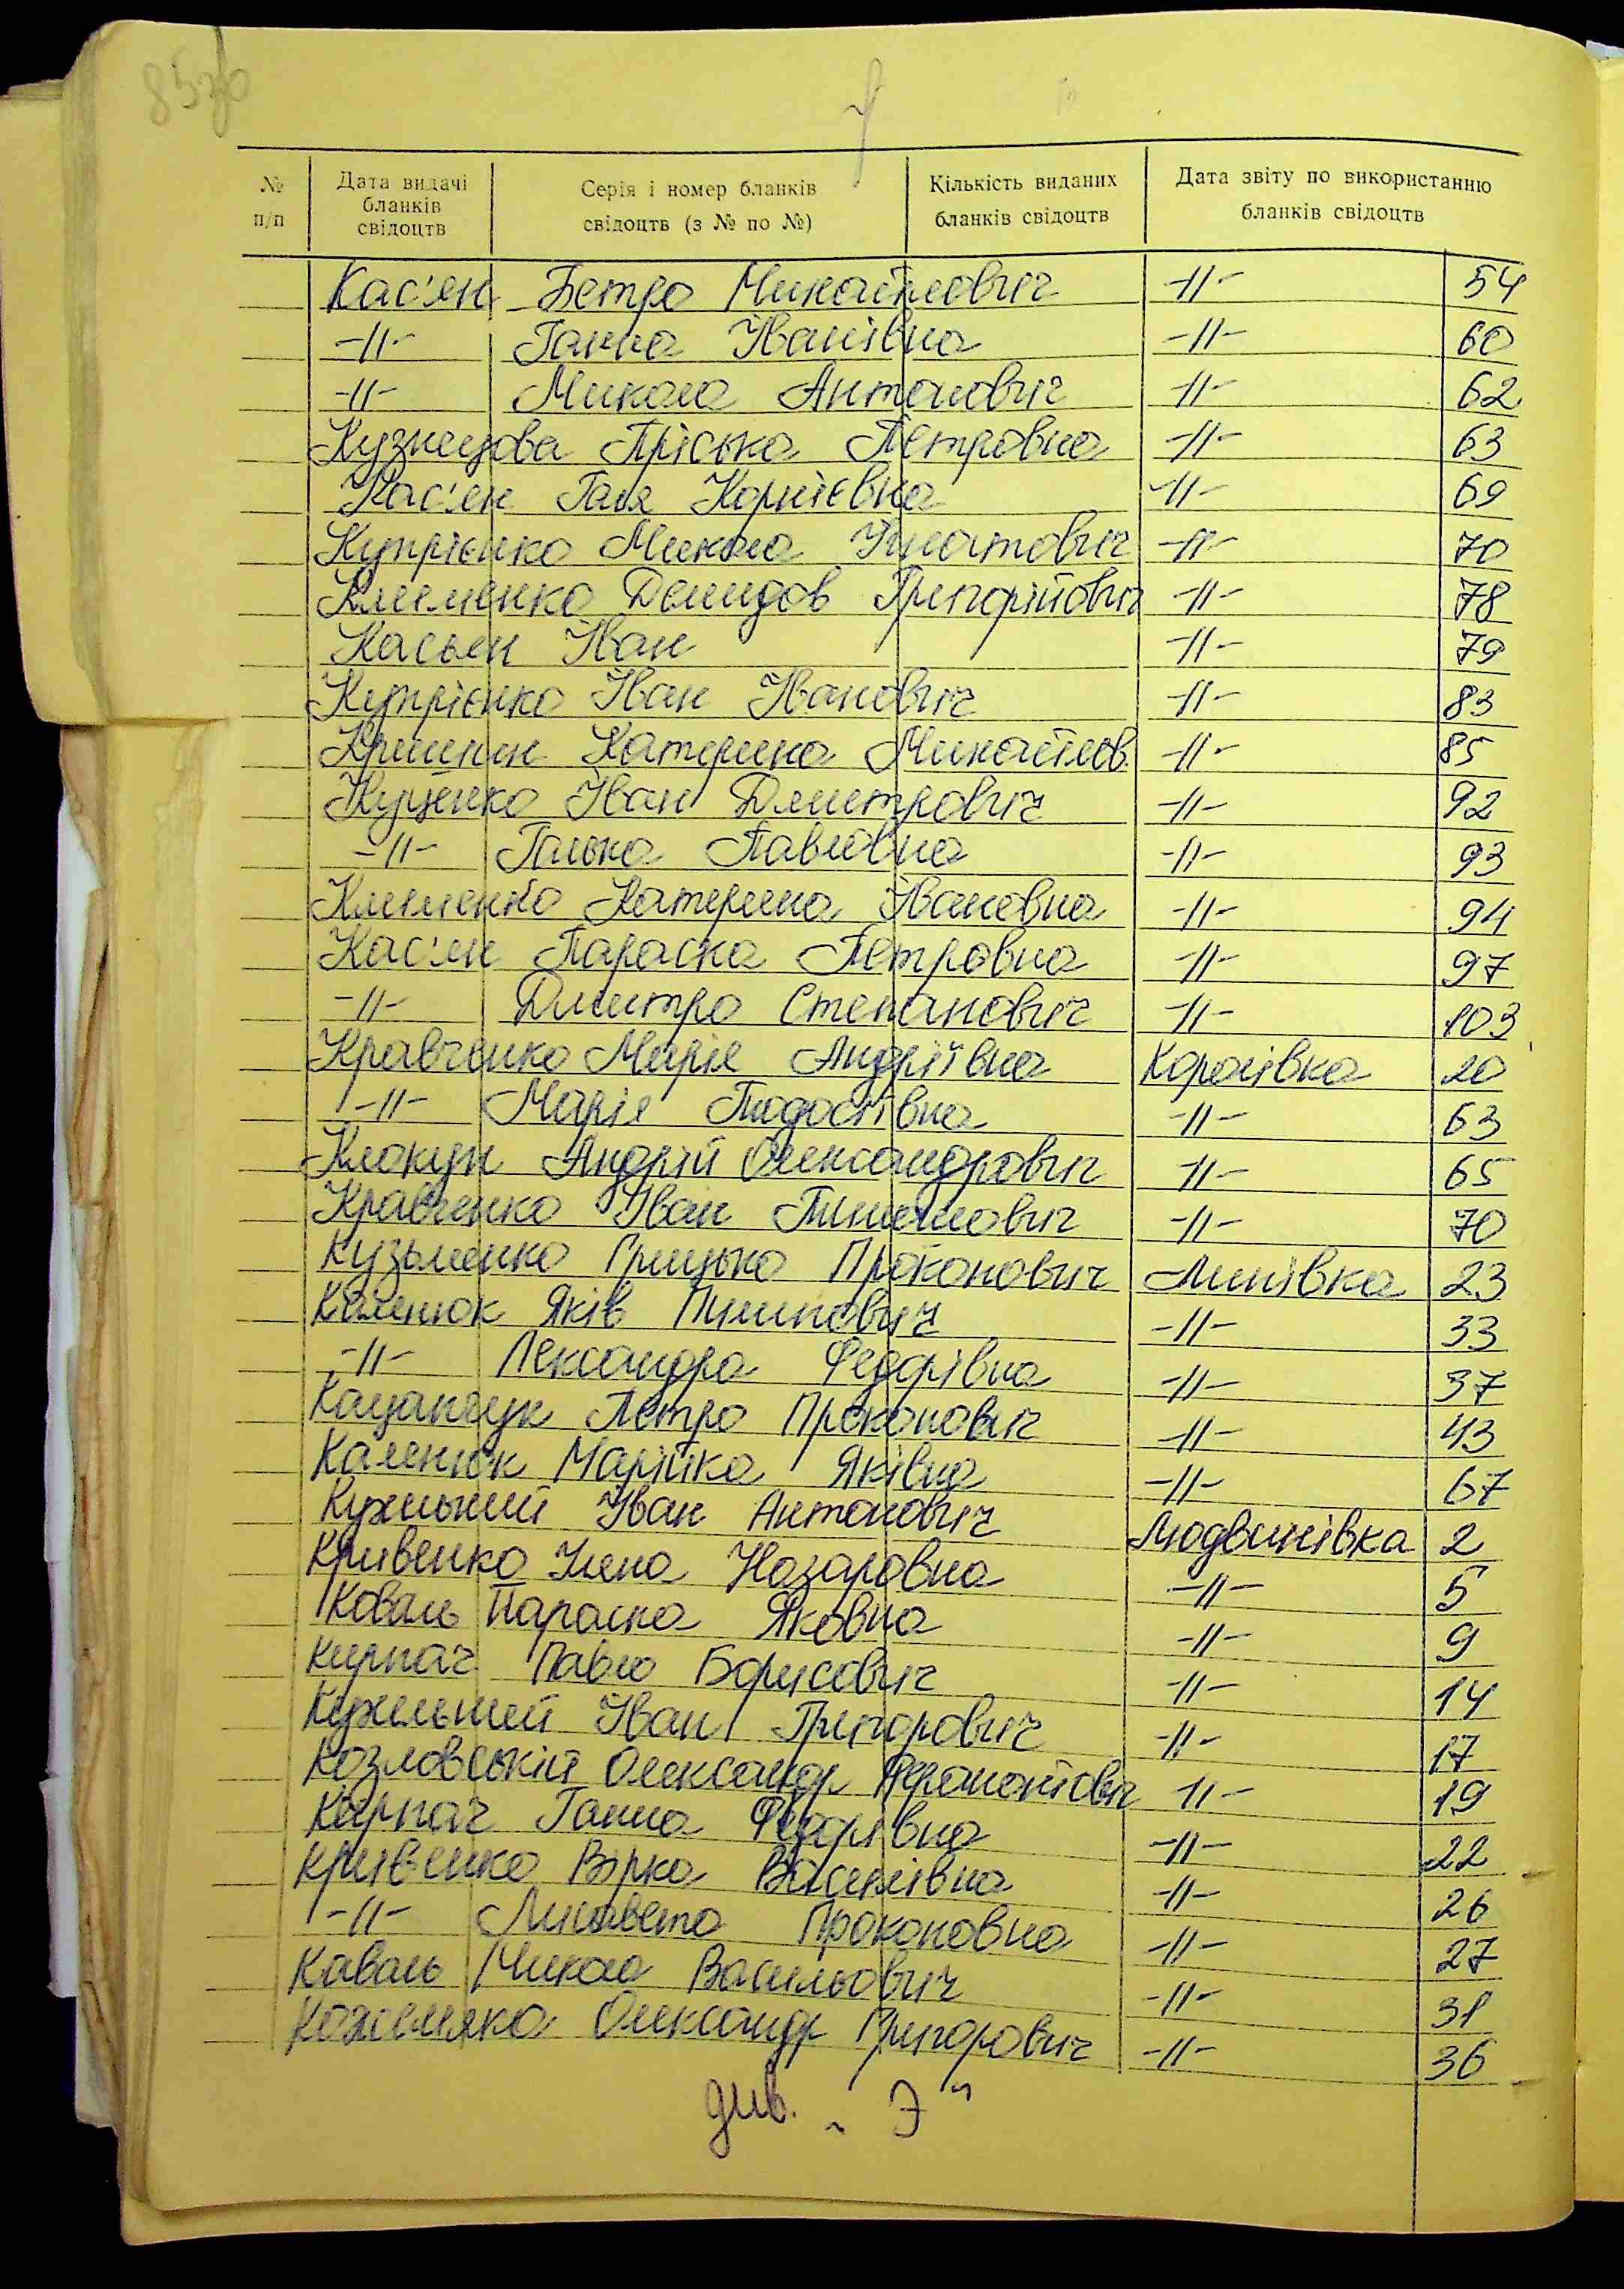 85зв
№ п/п | Дата видачі бланків свідоцтв | Серія і номер бланків свідоцтв (з № по №) | Кількість виданих бланків свідоцтв | Дата звіту по використанню бланків свідоцтв
Кас'ян Петро Михайлович -//- 54
-//- Ганна Іванівна -//- 60
-//- Микола Антонович -//- 62
Кузнецова Пріська Петровна -//- 63
Кас'ян Галя Корнієвна -//- 69
Купрієнко Микола Ігнатович -//- 70
Клименко Демидов Григорійович -//- 78
Касьян Іван -//- 79
Купрієнко Іван Іванович -//- 83
Катерина Михайлов. -//- 85
Куценко Іван Дмитрович -//- 92
-//- Галька Павлівна -//- 93
Клименко Катерина Івановна -//- 94
Кас'ян Параска Петровна -//- 97
-//- Дмитро Степанович -//- 103
Кравченко Марія Андріївна Королівка 20
-//- Марія Тодосівна -//- 63
Клокун Андрій Олександрович -//- 65
Кравченко Іван Тимошович -//- 70
Кузьменко Грицько Прокопович Липівка 23
Каленюк Яків Пилипович -//- 33
-//- Лександра Федорівна -//- 37
Кацапчук Петро Прокопович -//- 43
Каленюк Марійка Яківна -//- 67
Кужильний Іван Антонович Людвинівка 2
Кривенко Уляна Назаровна -//- 5
Коваль Параска Яковна -//- 9
Кирпач Павло Борисович -//- 14
Кужильний Іван Григорович -//- 17
Козловський Олександр -//- 19
Кирпач Ганна Федорівна -//- 22
Кривенко Вірка Василівна -//- 26
-//- Лисавета Прокоповна -//- 27
Коваль Микола Васильович -//- 31
Кожемяка Олександр Григорович -//- 36
див. „Э"